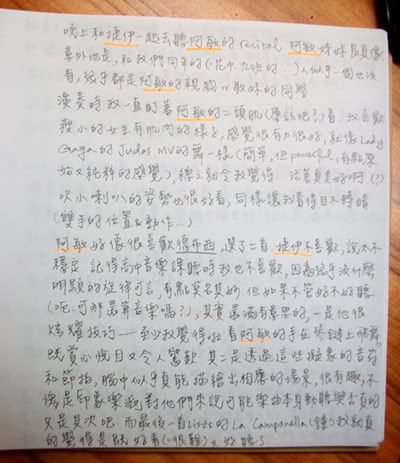 晚上和捷伊一起去聽阿敏的recital 阿敏妹妹長真像
意外地是,和我們同年的(花中九班的..)人似乎一個也沒
有,幾乎都是阿敏的親戚or敏妹的同學
演奏時我一直盯著阿敏的二頭肌(應該吧?)看 我喜歡
瘦小的女生有肌肉的樣子,感覺很有力很好,就像Lady
Gaga的Judas MV的舞一樣(簡單,但powerful,有點原
始又純粹的感覺),總之就令我覺得 活著真美好啊(?)
吹小喇叭的姿勢也很好看,同樣讓我看得目不轉睛
(雙手的位置&動作..)
阿敏好像很喜歡德布西,選了二首 捷伊不喜歡,說太不
穩定 記得高中音樂課聽時我也不喜歡,因為幾乎沒什麼
明顯的旋律可言,有點莫名其妙 但如果不管好不好聽
(呃,可那還算音樂嗎?),其實還滿有意思的,一是他很
炫耀技巧——至少我覺得啦 看阿敏的手在琴鍵上飛舞
既賞心悅目又令人驚歎 其二是透過這些擬象的音符
和節拍,腦中似乎真能描繪出相應的場景,很有趣,不
愧是印象樂派 對他們來說可能樂曲本身動聽與否真的
又是其次吧 而最後一首Liszt的La Campanella(鐘)我就真
的覺得是既好看(很難)又好聽